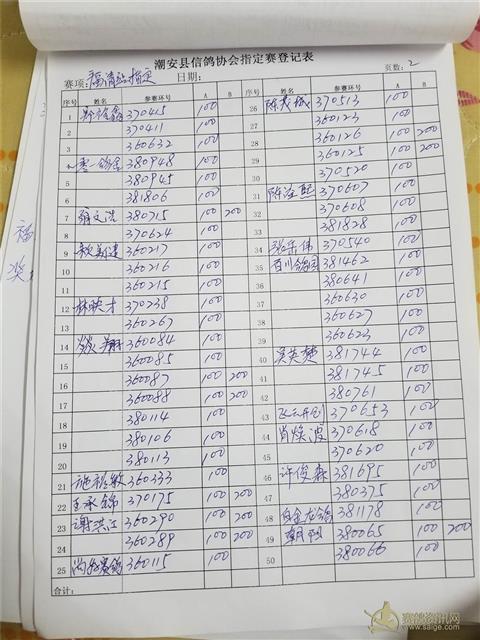 潮安县信鸽协会指定赛登记表
赛项: 福清站指定 日期: 页数: 2
序号 姓名 参赛环号 A B 序号 姓名 参赛环号 A B
1 370415 100 26 370513 100
2 370411 100 27 360123 100
3 360632 100 28 360126 100 200
4 380948 100 29 360125 100 200
5 380945 100 30 370520 100
6 381806 100 31 370607 100
7 380715 100 200 32 370608 100
8 370624 100 33 381828 100
9 360217 100 34 张岳伟 370540 100
10 360216 100 35 百川鸽园 381462 100
11 360215 100 36 380641 100
12 林映才 370238 100 37 360630 100
13 360267 100 38 360627 100
14 360084 100 39 360623 100
15 360085 100 40 吴英楚 381744 100
16 360087 100 200 41 381745 100
17 360088 100 200 42 380761 100
18 380114 100 43 370653 100
19 380106 100 44 肖焕波 370618 100
20 380113 100 45 370620 100
21 360333 100 46 许俊森 381695 100
22 王承锦 370175 100 200 47 380375 100
23 谢洪江 360290 100 200 48 381178 100
24 360289 100 200 49 朝阳 380065 100 200
25 360115 100 50 380066 100
合计:
赛鸽资讯网
www.saige.com